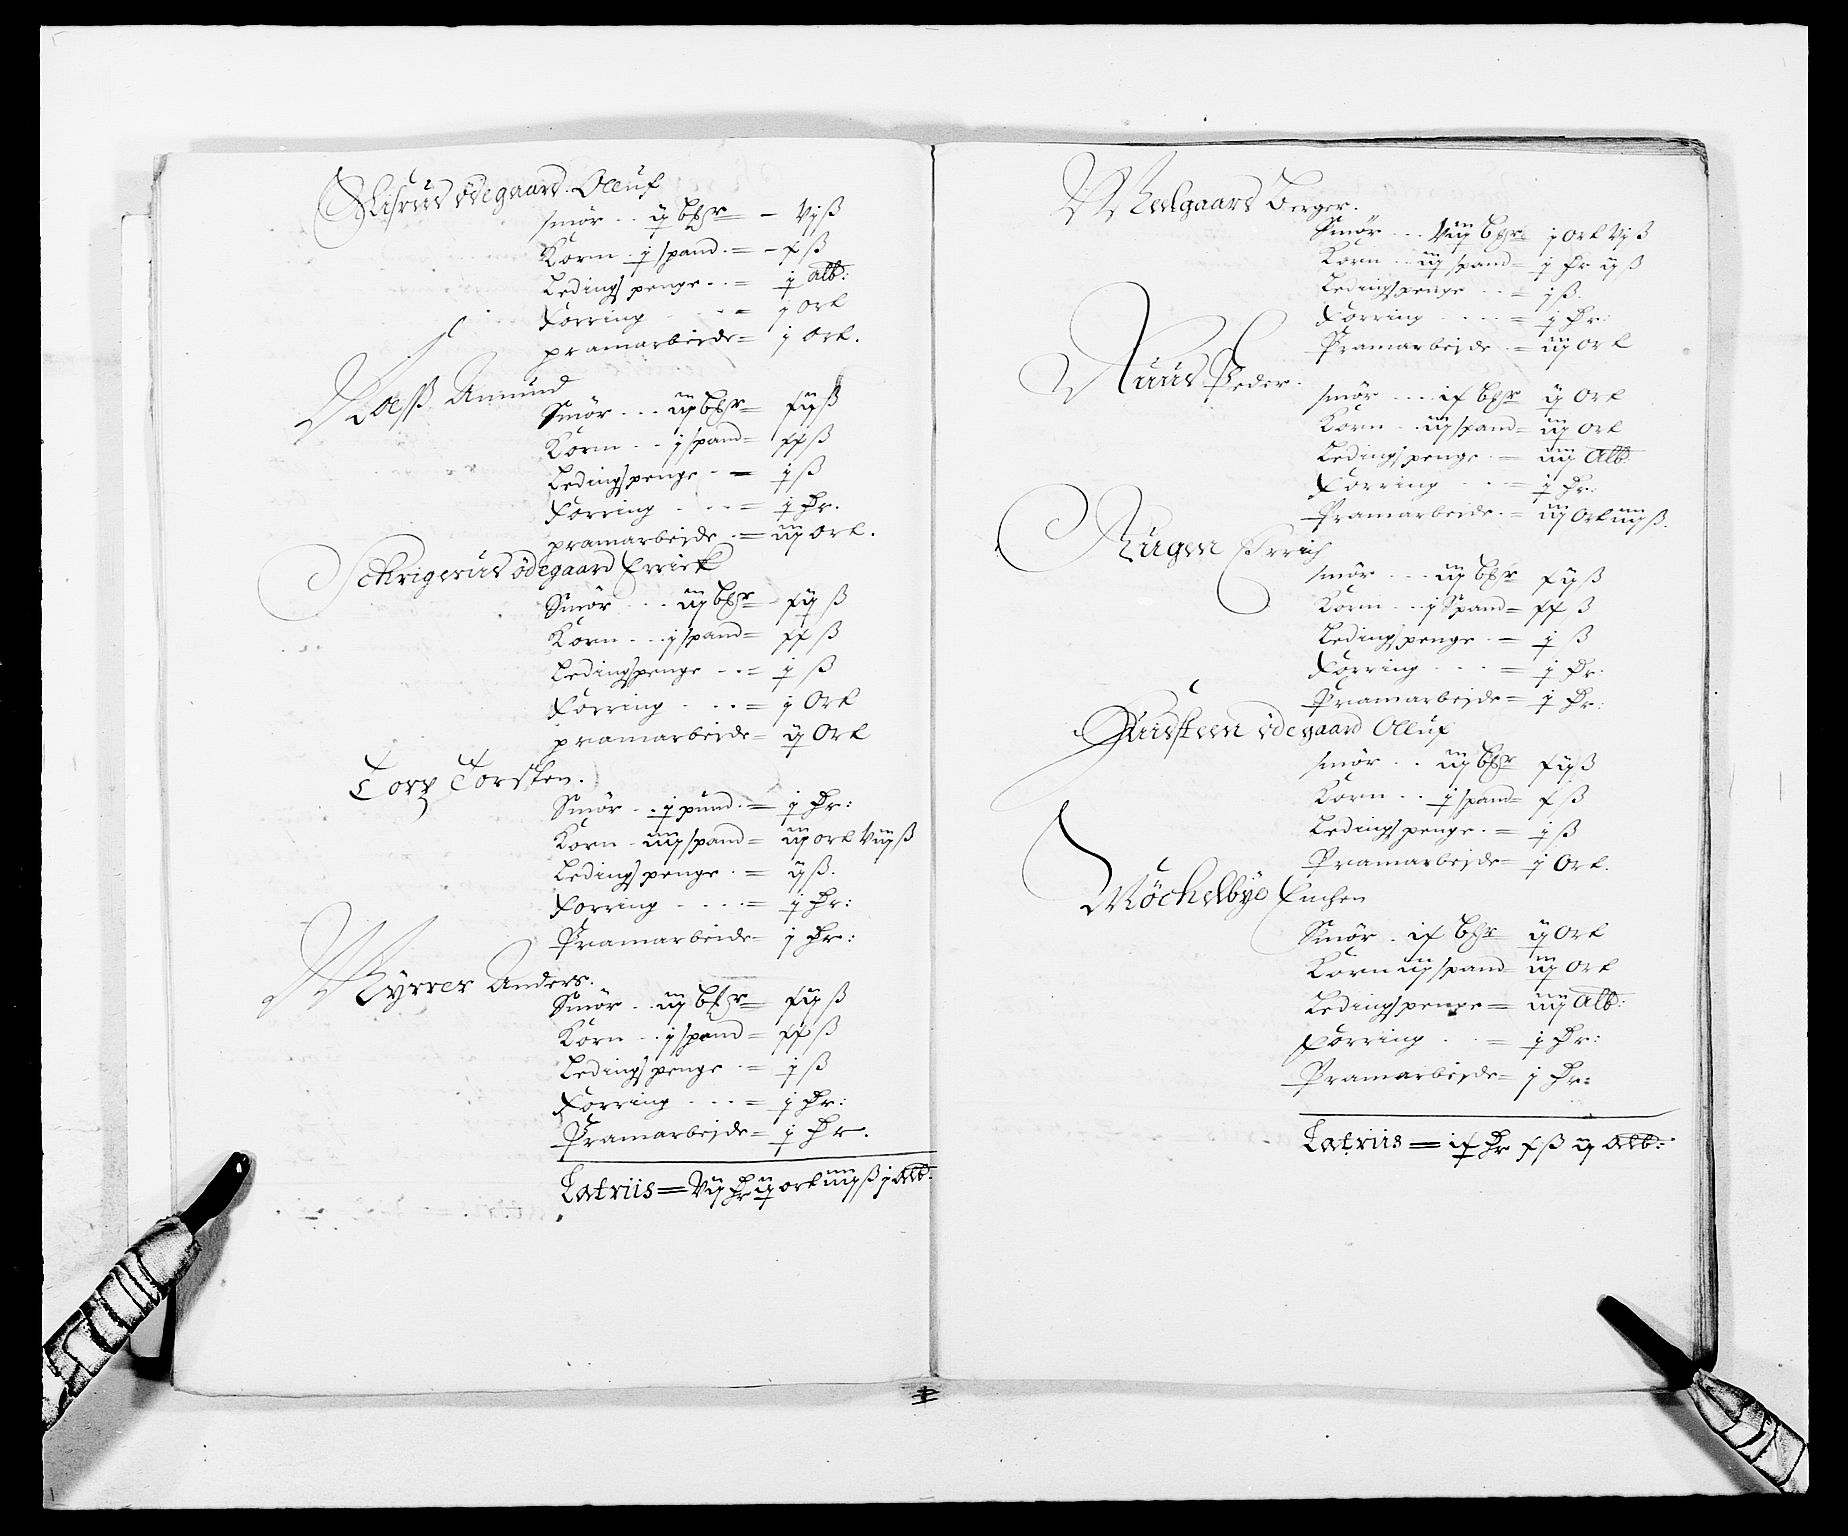 ødegaard. Olluf
Smør . . ij bßr – vjß
Korn . j spand . = – xß
Ledingspenge . . = j alb:
Førring . . = j ort
pramarbejde = j ort.
Amund
Smør . . . iij bßr = xijß
Korn . . j spand = xxß
Ledingspenge . = jß
Førring . . . = j Dr.
pramarbejde . = iij ort.
Schrigerud ødegaard Errick
Smør . . . iij bßr – xijß
Korn . . . j spand = xxß
Ledingspenge . . = jß
Førring . . . = j ort
pramarbejde = ij ort
Torp Torsten.
Smør . . j pund . = j Dr:
Korn . iiij spand = iij ort viijß
Ledingspenge . = ijß.
Førring . . . . = j Dr:
Pramarbeide = j Dr:
Myrrer Anders.
Smør . . iij bßr = xijß
Korn . . j spand = xxß
Ledingspenge . = jß
Førring . . . = j Dr:
Pramarbejde = j Dr.
Latriis = vij Dr ij ort iiijß j alb.
Melgaard Berger.
Smør . . . viij bßr j ort vjß
Korn . . iij spand = j Dr ijß
Ledingspenge . . = jß.
Førring . . . . = j Dr:
Pramarbejde . = iij ort
Ruud Peder.
smør . . . . ix bßr ij ort
Korn . . iij spand = iij ort
Ledingspenge . = iiij alb.
Førring . . . = j Dr:
Pramarbeide . = iij ort iiijß.
Rugen Errich
smør . . . iij bßr xijß
Korn . . j Spand = xxß
Ledingspenge . = jß
Førring . . . = j Dr:
Pramarbejde = j Dr:
ødegaard Olluf
smør . . iij bßr xijß
Korn . . j spand = xß
Ledingspenge . = jß
Pramarbejde = j ort.
Møchelbye
Smør . ix bßr ij ort
Korn iij spand = iij ort
Ledingspenge = iiij alb:
Førring . . = j Dr:
Pramarbejde = j Dr:
Latriis = ix Dr xß ij alb: